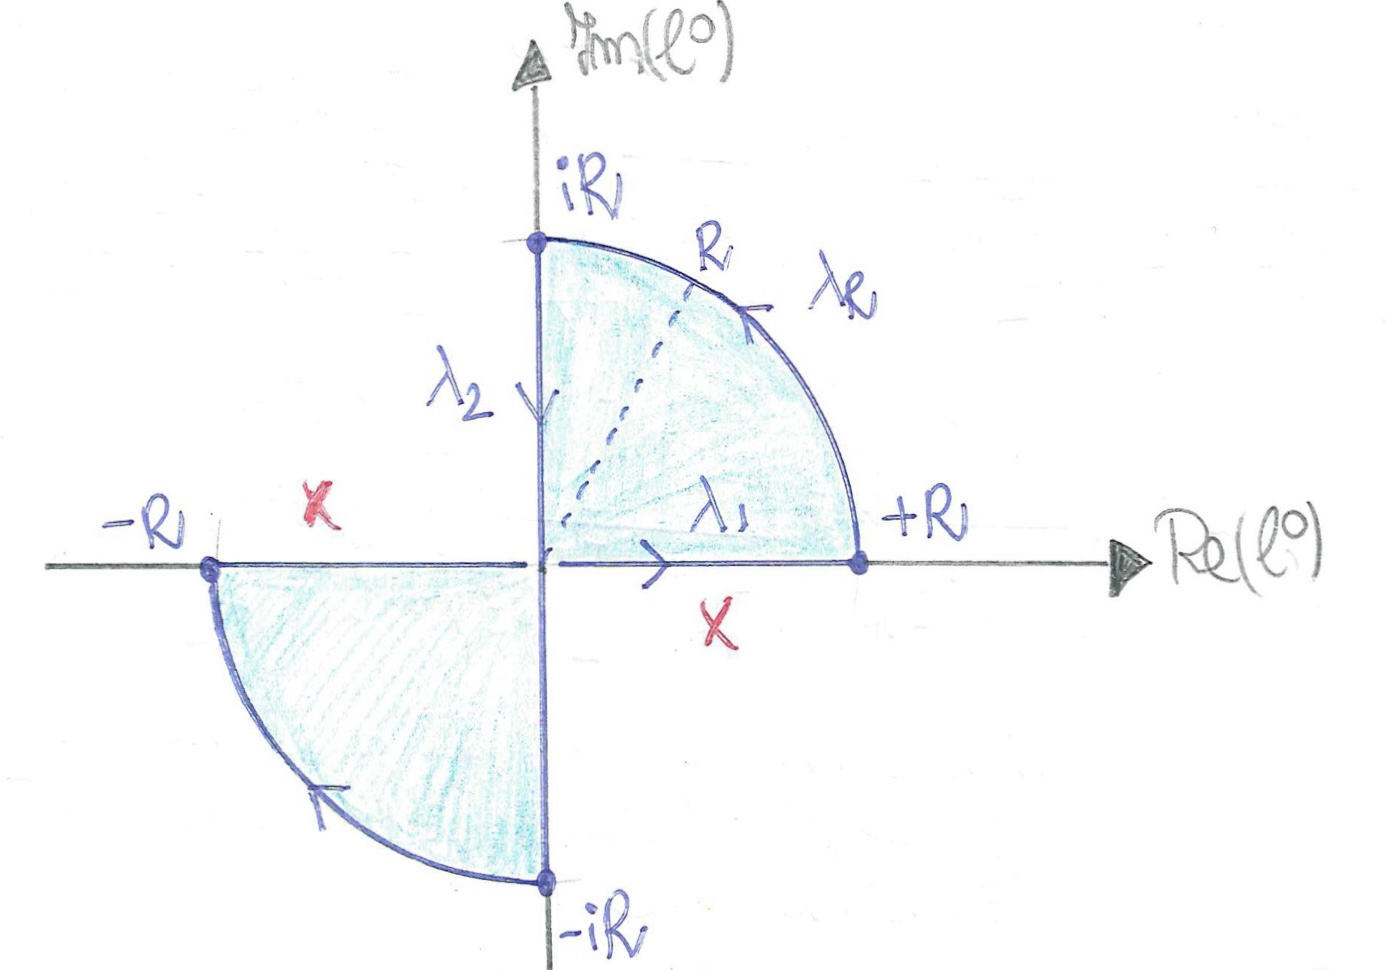 Im(ℓ⁰)
iR
R
λ_R
λ₂
λ₁
-R
x
+R
Re(ℓ⁰)
x
-iR